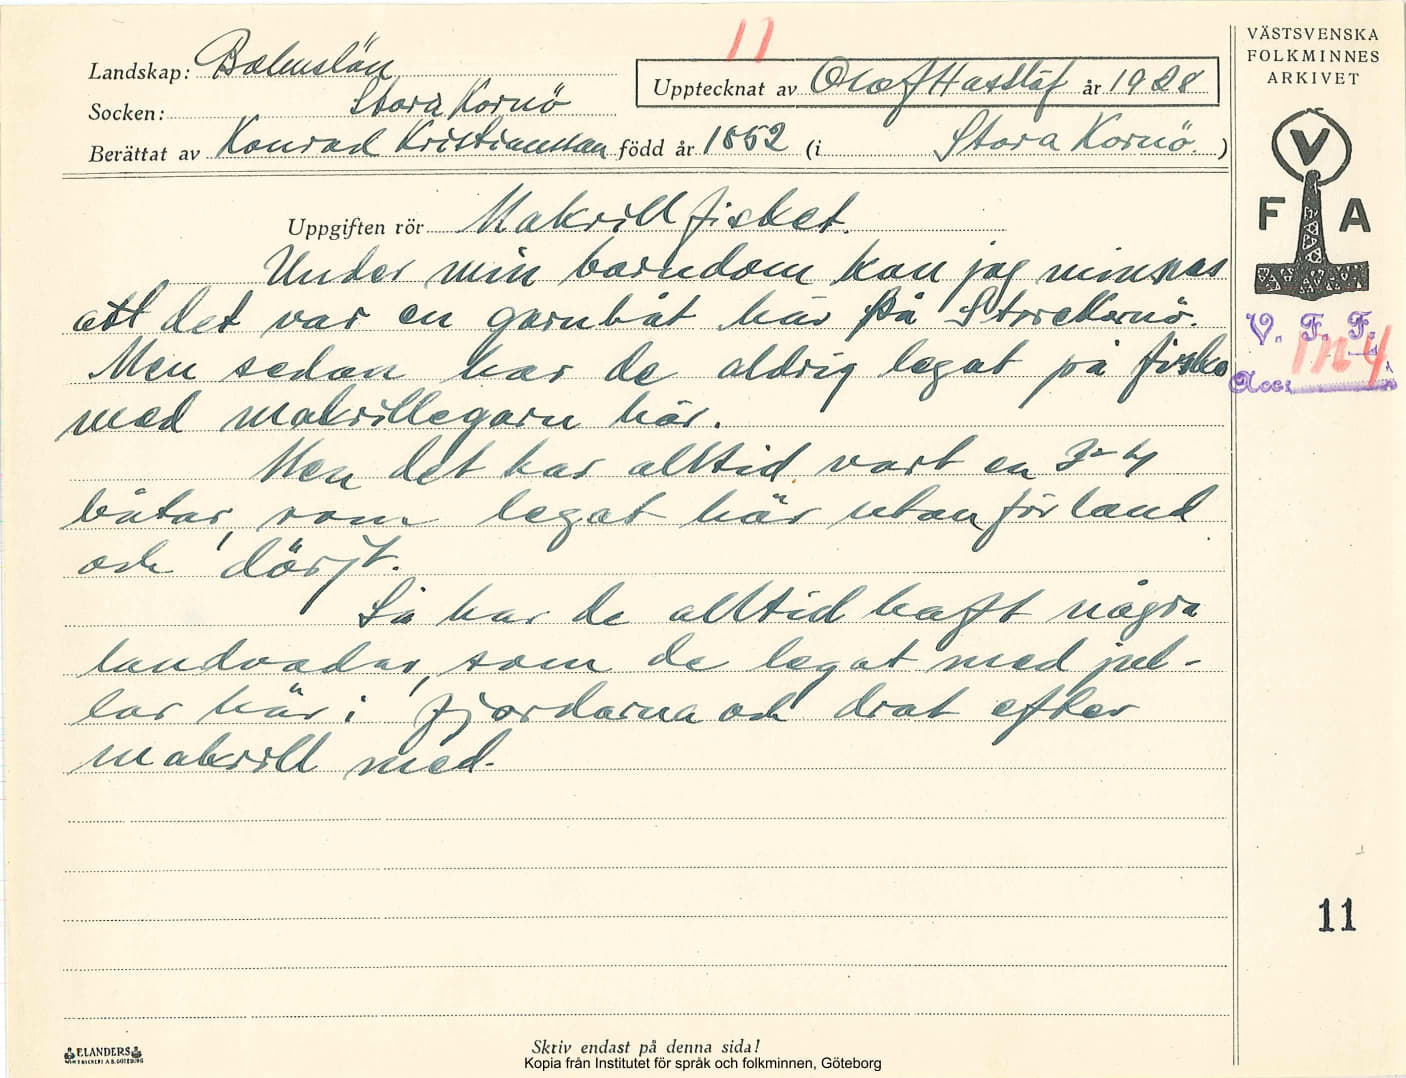 11
Landskap: Bohuslän
Socken: Stora Kornö
Berättat av Konrad Kristiansson född år 1852 (i Stora Kornö.)
Upptecknat av Olof Hasslöf år 1928
VÄSTSVENSKA
FOLKMINNES
ARKIVET
V
F A
V. F. F.
Acc:
Uppgiften rör Makrillfisket.
Under min barndom kan jag minnas
att det var en garnbåt här på Store Kornö.
Men sedan har de aldrig legat på fiske
med makrillegarn här.
Men det har alltid vart en 3-4
båtar, som legat här utanför land
och dörjt.
Så har de alltid haft några
landvadar, som de legat med jul-
lar här i fjordarna och drat efter
makrill med.
11
ELANDERS
Skriv endast på denna sida!
Kopia från Institutet för språk och folkminnen, Göteborg